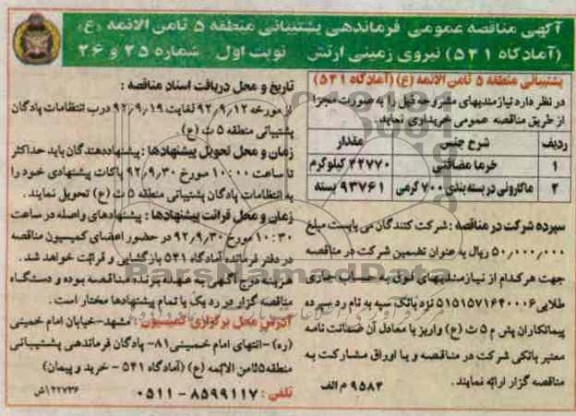 آگهی مناقصه عمومی فرماندهی پشتیبانی منطقه ۵ ثامن الائمه (ع)
(آمادگاه ۵۴۱) نیروی زمینی ارتش نوبت اول شماره ۲۵ و ۲۶
پشتیبانی منطقه ۵ ثامن الائمه (ع) (آمادگاه ۵۴۱)
در نظر دارد نیازمندیهای مشروحه ذیل را به صورت مجزا
از طریق مناقصه عمومی خریداری نماید.
ردیف شرح جنس مقدار
۱ خرما مضافتی ۲۲۷۷۰ کیلوگرم
۲ ماکارونی در بسته بندی ۷۰۰ گرمی ۹۳۷۶۱ بسته
سپرده شرکت در مناقصه : شرکت کنندگان می بایست مبلغ
۵۰,۰۰۰,۰۰۰ ریال به عنوان تضمین شرکت در مناقصه
جهت هرکدام از نیازمندیهای فوق به حساب جاری
طلایی ۵۱۵۱۵۷۱۶۴۰۰۰۶ نزد بانک سپه به نام رد سپرده
پیمانکاران پش م ۵ ث (ع) واریز یا معادل آن ضمانت نامه
معتبر بانکی شرکت در مناقصه و یا اوراق مشارکت به
مناقصه گزار ارائه نمایند. ۹۵۸۴ م الف
تاریخ و محل دریافت اسناد مناقصه :
از مورخه ۹۲,۹,۱۲ لغایت ۹۲,۹,۱۹ درب انتظامات پادگان
پشتیبانی منطقه ۵ ث (ع)
زمان و محل تحویل پیشنهادها : پیشنهاددهندگان باید حداکثر
تا ساعت ۱۰:۰۰ مورخ ۹۲,۹,۳۰ پاکات پیشنهادی خود را
به انتظامات پادگان پشتیبانی منطقه ۵ ث (ع) تحویل نمایند.
زمان و محل قرائت پیشنهادها : پیشنهادهای واصله در ساعت
۱۰:۳۰ مورخ ۹۲,۹,۳۰ در حضور اعضای کمیسیون مناقصه
در دفتر فرمانده آمادگاه ۵۴۱ بازگشایی و قرائت خواهد شد.
هزینه درج آگهی به عهده برنده مناقصه بوده و دستگاه
مناقصه گزار در رد یک یا تمام پیشنهادها مختار است.
آدرس محل برگزاری کمیسیون : مشهد-خیابان امام خمینی
(ره) -انتهای امام خمینی ۸۱- پادگان فرماندهی پشتیبانی
منطقه ۵ ثامن الائمه (ع) (آمادگاه ۵۴۱ - خرید و پیمان)
تلفن : ۸۵۹۹۱۱۷ - ۰۵۱۱ ۱۲۲۷۳۶/ش
ParsNamadData